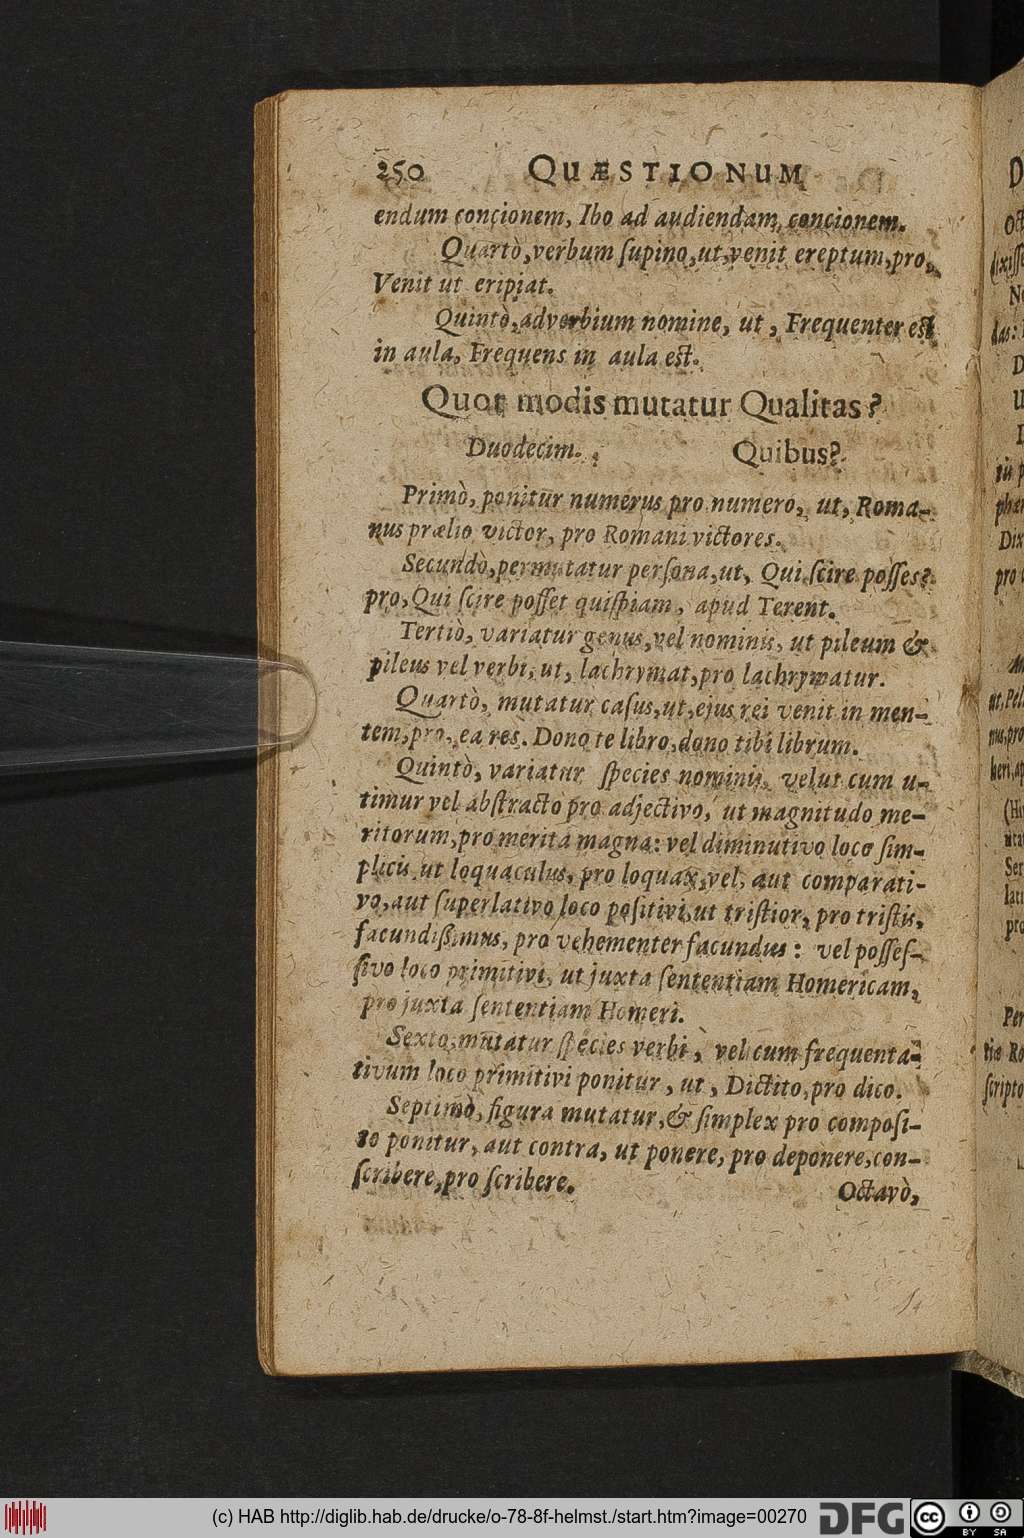 250 QUÆSTIONUM
endum concionem, Ibo ad audiendam concionem.
Quartò, verbum ſupino, ut, venit ereptum, pro,
Venit ut eripiat.
Quintò, adverbium nomine, ut, Frequenter est
in aula, Frequens in aula est.
Quot modis mutatur Qualitas?
Duodecim. Quibus?
Primò, ponitur numerus pro numero, ut, Roma-
nus prælio victor, pro Romani victores.
Secundò, permutatur perſona, ut, Qui ſcire poſſes?
pro, Qui ſcire poſſet quiſpiam, apud Terent.
Tertiò, variatur genus, vel nominis, ut pileum &
pileus vel verbi, ut, lachrymat, pro lachrymatur.
Quartò, mutatur caſus, ut, ejus rei venit in men-
tem, pro, ea res. Dono te libro, dono tibi librum.
Quintò, variatur ſpecies nominis, velut cum u-
timur vel abſtracto pro adjectivo, ut magnitudo me-
ritorum, pro merita magna: vel diminutivo loco ſim-
plicis ut loquaculus, pro loquax, vel, aut comparati-
vo, aut ſuperlativo loco poſitivi, ut triſtior, pro triſtis,
facundißimus, pro vehementer facundus: vel poſſeſ-
ſivo loco primitivi, ut juxta ſententiam Homericam,
pro juxta ſententiam Homeri.
Sexto, mutatur ſpecies verbi, vel cum frequenta-
tivum loco primitivi ponitur, ut, Dictito, pro dico.
Septimò, figura mutatur, & ſimplex pro compoſi-
to ponitur, aut contra, ut ponere, pro deponere, con-
ſcribere, pro ſcribere.
Octavò,
(c) HAB http://diglib.hab.de/drucke/o-78-8f-helmst./start.htm?image=00270 DFG cc BY SA